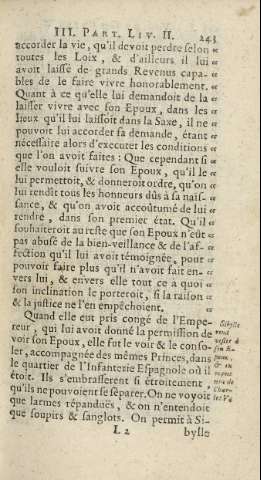 III. PART. LIV. II. 243
accorder la vie, qu'il devoit perdre selon
toutes les Loix, & d'ailleurs il lui
avoit laissé de grands Revenus capa-
bles de le faire vivre honorablement.
Quant à ce qu'elle lui demandoit de la
laisser vivre avec son Epoux, dans les
lieux qu'il lui laissoit dans la Saxe, il ne
pouvoit lui accorder sa demande, étant
nécessaire alors d'executer les conditions
que l'on avoit faites: Que cependant si
elle vouloit suivre son Epoux, qu'il le
lui permettoit, & donneroit ordre, qu'on
lui rendît tous les honneurs dûs à sa nais-
sance, & qu'on avoit accoûtumé de lui
rendre, dans son premier état. Qu'il
souhaiteroit au reste que son Epoux n'eût
pas abusé de la bien-veillance & de l'af-
fection qu'il lui avoit témoignée, pour
pouvoir faire plus qu'il n'avoit fait en-
vers lui, & envers elle tout ce à quoi
son inclination le porteroit, si la raison
& la justice ne l'en empêchoient.
Quand elle eut pris congé de l'Empe-
reur, qui lui avoit donné la permission de
voir son Epoux, elle fut le voir & le conso-
ler, accompagnée des mêmes Princes, dans
le quartier de l'Infanterie Espagnole où il
étoit. Ils s'embrasserent si étroitement,
qu'ils ne pouvoient se séparer. On ne voyoit
que larmes répanduës, & on n'entendoit
que soupirs & sanglots. On permit à Si-
L 2 bylle
Sibylle
rend
visite à
son E-
poux,
& en